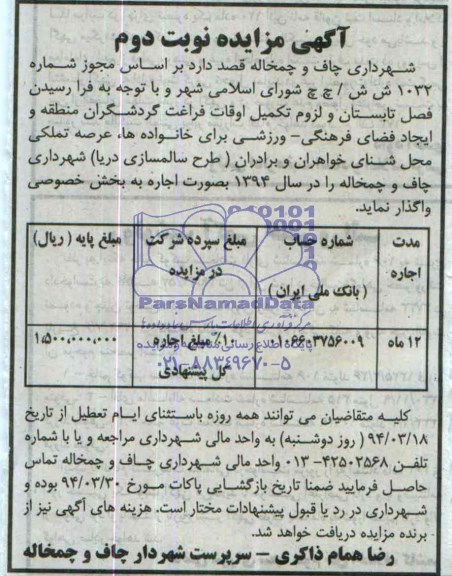 آگهی مزایده نوبت دوم
شهرداری چاف و چمخاله قصد دارد بر اساس مجوز شماره
۱۰۳۲ ش ش / چ چ شورای اسلامی شهر و با توجه به فرا رسیدن
فصل تابستان و لزوم تکمیل اوقات فراغت گردشگران منطقه و
ایجاد فضای فرهنگی- ورزشی برای خانواده ها، عرصه تملکی
محل شنای خواهران و برادران ( طرح سالمسازی دریا) شهرداری
چاف و چمخاله را در سال ۱۳۹۴ بصورت اجاره به بخش خصوصی
واگذار نماید.
مدت اجاره
شماره حساب ( بانک ملی ایران )
مبلغ سپرده شرکت در مزایده
مبلغ پایه ( ریال)
۱۲ ماه
۳۷۵۶۰۰۹
۱۰٪ مبلغ اجاره کل پیشنهادی
۱,۵۰۰,۰۰۰,۰۰۰
ParsNamadData
۰۲۱-۸۸۳۴۹۶۷۰-۵
کلیه متقاضیان می توانند همه روزه باستثنای ایام تعطیل از تاریخ
۹۴/۰۳/۱۸ ( روز دوشنبه) به واحد مالی شهرداری مراجعه و یا با شماره
تلفن ۴۲۵۰۲۵۶۸- ۰۱۳ واحد مالی شهرداری چاف و چمخاله تماس
حاصل فرمایید ضمنا تاریخ بازگشایی پاکات مورخ ۹۴/۰۳/۳۰ بوده و
شهرداری در رد یا قبول پیشنهادات مختار است. هزینه های آگهی نیز از
برنده مزایده دریافت خواهد شد.
رضا همام ذاکری – سرپرست شهردار چاف و چمخاله